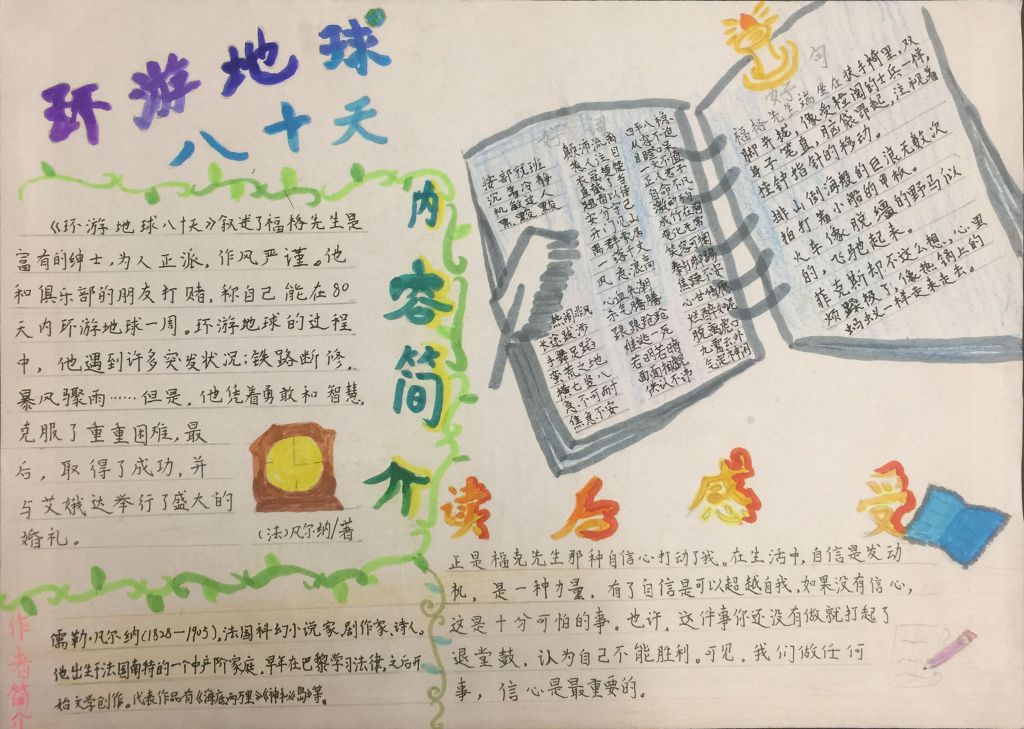 环游地球
八十天
内容简介
《环游地球八十天》叙述了福格先生是
富有的绅士,为人正派,作风严谨。他
和俱乐部的朋友打赌,称自己能在80
天内环游地球一周。环游地球的过程
中,他遇到许多突发状况:铁路断修,
暴风骤雨……但是,他凭着勇敢和智慧,
克服了重重困难,最
后,取得了成功,并
与艾娥达举行了盛大的
婚礼。
(法)凡尔纳/著
作者简介
儒勒·凡尔纳(1828—1905),法国科幻小说家、剧作家、诗人。
他出生于法国南特的一个中产阶家庭,早年在巴黎学习法律,之后开
始文学创作。代表作品有《海底两万里》《神秘岛》等。
好词
按部就班
沉着冷静
机敏过人
热闹非凡
长途跋涉
手舞足蹈
蛮荒之地
横七竖八
急不可耐
焦急不安
四平八稳
心血来潮
若明若暗
心甘情愿
九霄云外
好句
福格先生端坐在扶手椅里,双
脚并拢,像受检阅的士兵一样,
身子笔直,脑袋昂起,注视着
挂钟指针的移动。
排山倒海般的巨浪无数次
拍打着小船的甲板。
火车像脱缰的野马似
的,飞驰起来。
菲克斯却不这么想,心里
烦躁极了,像热锅上的
蚂蚁一样走来走去。
读后感受
正是福克先生那种自信心打动了我。在生活中,自信是发动
机,是一种力量,有了自信是可以超越自我,如果没有信心,
这是十分可怕的事。也许,这件事你还没有做就打起了
退堂鼓,认为自己不能胜利。可见,我们做任何
事,信心是最重要的。